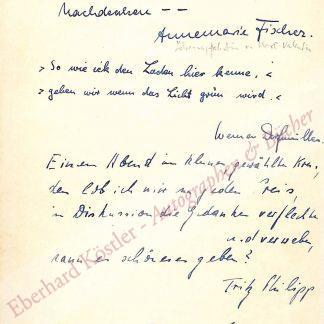 Nachdenken — —
Annemarie Fischer.
» So wie ich den Laden hier kenne, «
» gehen wir wenn das Licht grün wird. «
Werner
Einen Abend im kleinen gewählten Kreis,
den lob ich mir um jeden Preis,
in Diskussion die Gedanken verflechten
und verweben,
kann es schöneres geben?
Fritz Philipp
Eberhard Köstler - Autographen & Bücher